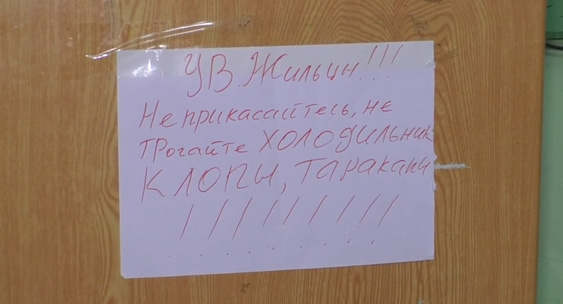 УВ. Жильцы!!!
Не прикасайтесь, не
трогайте ХОЛОДИЛЬНИК
КЛОПЫ, Тараканы
!!!!!!!!!